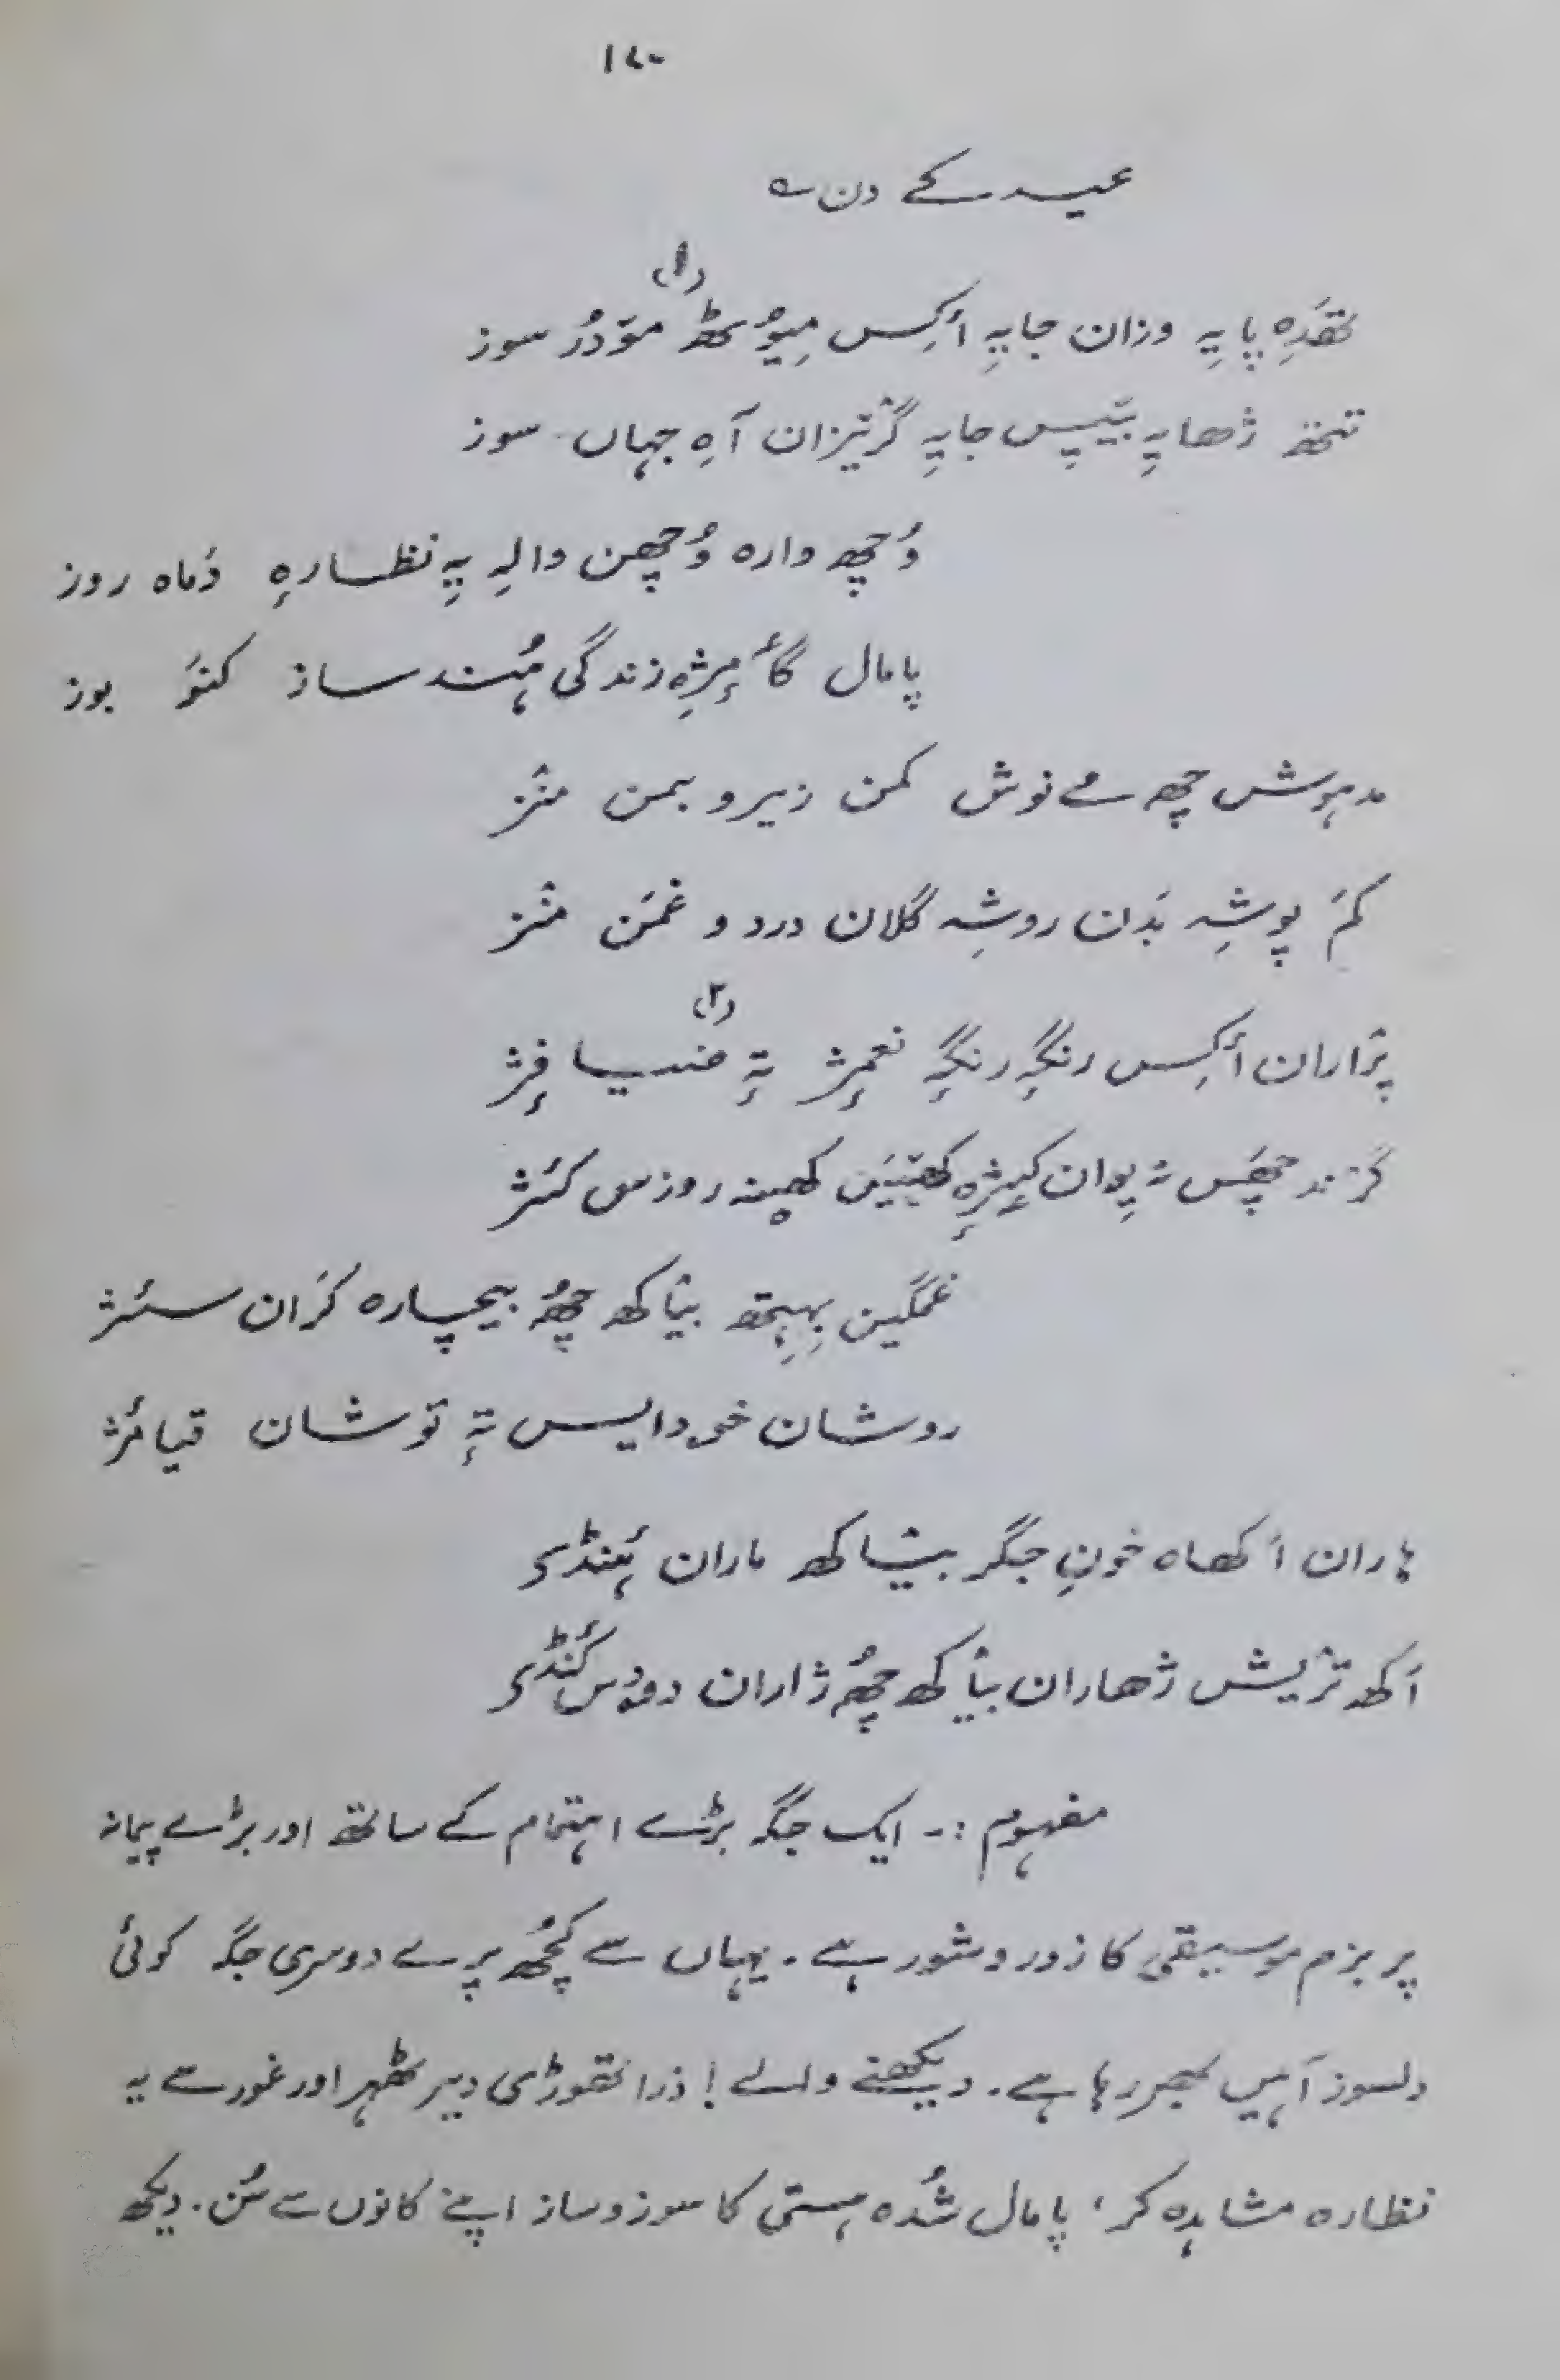 ۱۷۰
عید کے دن ؎
تھزِہ پایہِ وزان جایہِ أکِس میوٗٹھ (۱) موٚدُر سوز
تتھ ژھایہِ بیٚیِس جایہِ گرٛیزان آہِ جہاں سوز
وُچھ وارہ وُچھن والہِ یہِ نظارہٕ دَماہ روز
پامال گأمٕژہِ زندگی ہُند ساز کنَو بوز
مدہوش چھِ مے نوش کمن زیر و بمن منٛز
کمَ پوشہِ بَدن روشہِ گلان درد و غمَن منٛز
پرٛاران أکِس رنگہِ رنگہِ نعمٕژ تہٕ ضیافٕژ
گرٛند چھَس نہٕ پوان کیٛژٕہ کھیٚیَن کھینہٕ روزس کٔژ
غمگین بِہِتھ بیٛاکھ چھُ بیچارہ کرَان سٔژ
روشان خدایس تہٕ توشان قیامٔژ
ہاران اَکھاہ خونِ جگر بیٛاکھ ماران ۂنڈی
اَکھ ترٛیش ژھاران بیٛاکھ چھُ ژاران دودٕس کٔنڈی
مفہوم :۔ ایک جگہ بڑے اہتمام کے ساتھ اور بڑے پیمانہ
پر بزم موسیقی کا زور و شور ہے ۔ یہاں سے کچُھ پرے دوسری جگہ کوئی
دلسوز آہیں بھر رہا ہے ۔ دیکھنے والے ! ذرا تھوڑی دیر ٹھہر اور غور سے یہ
نظارہ مشاہدہ کر ، پامال شُدہ ہستی کا سوز و ساز اپنے کانوں سے سُن ۔ دیکھ